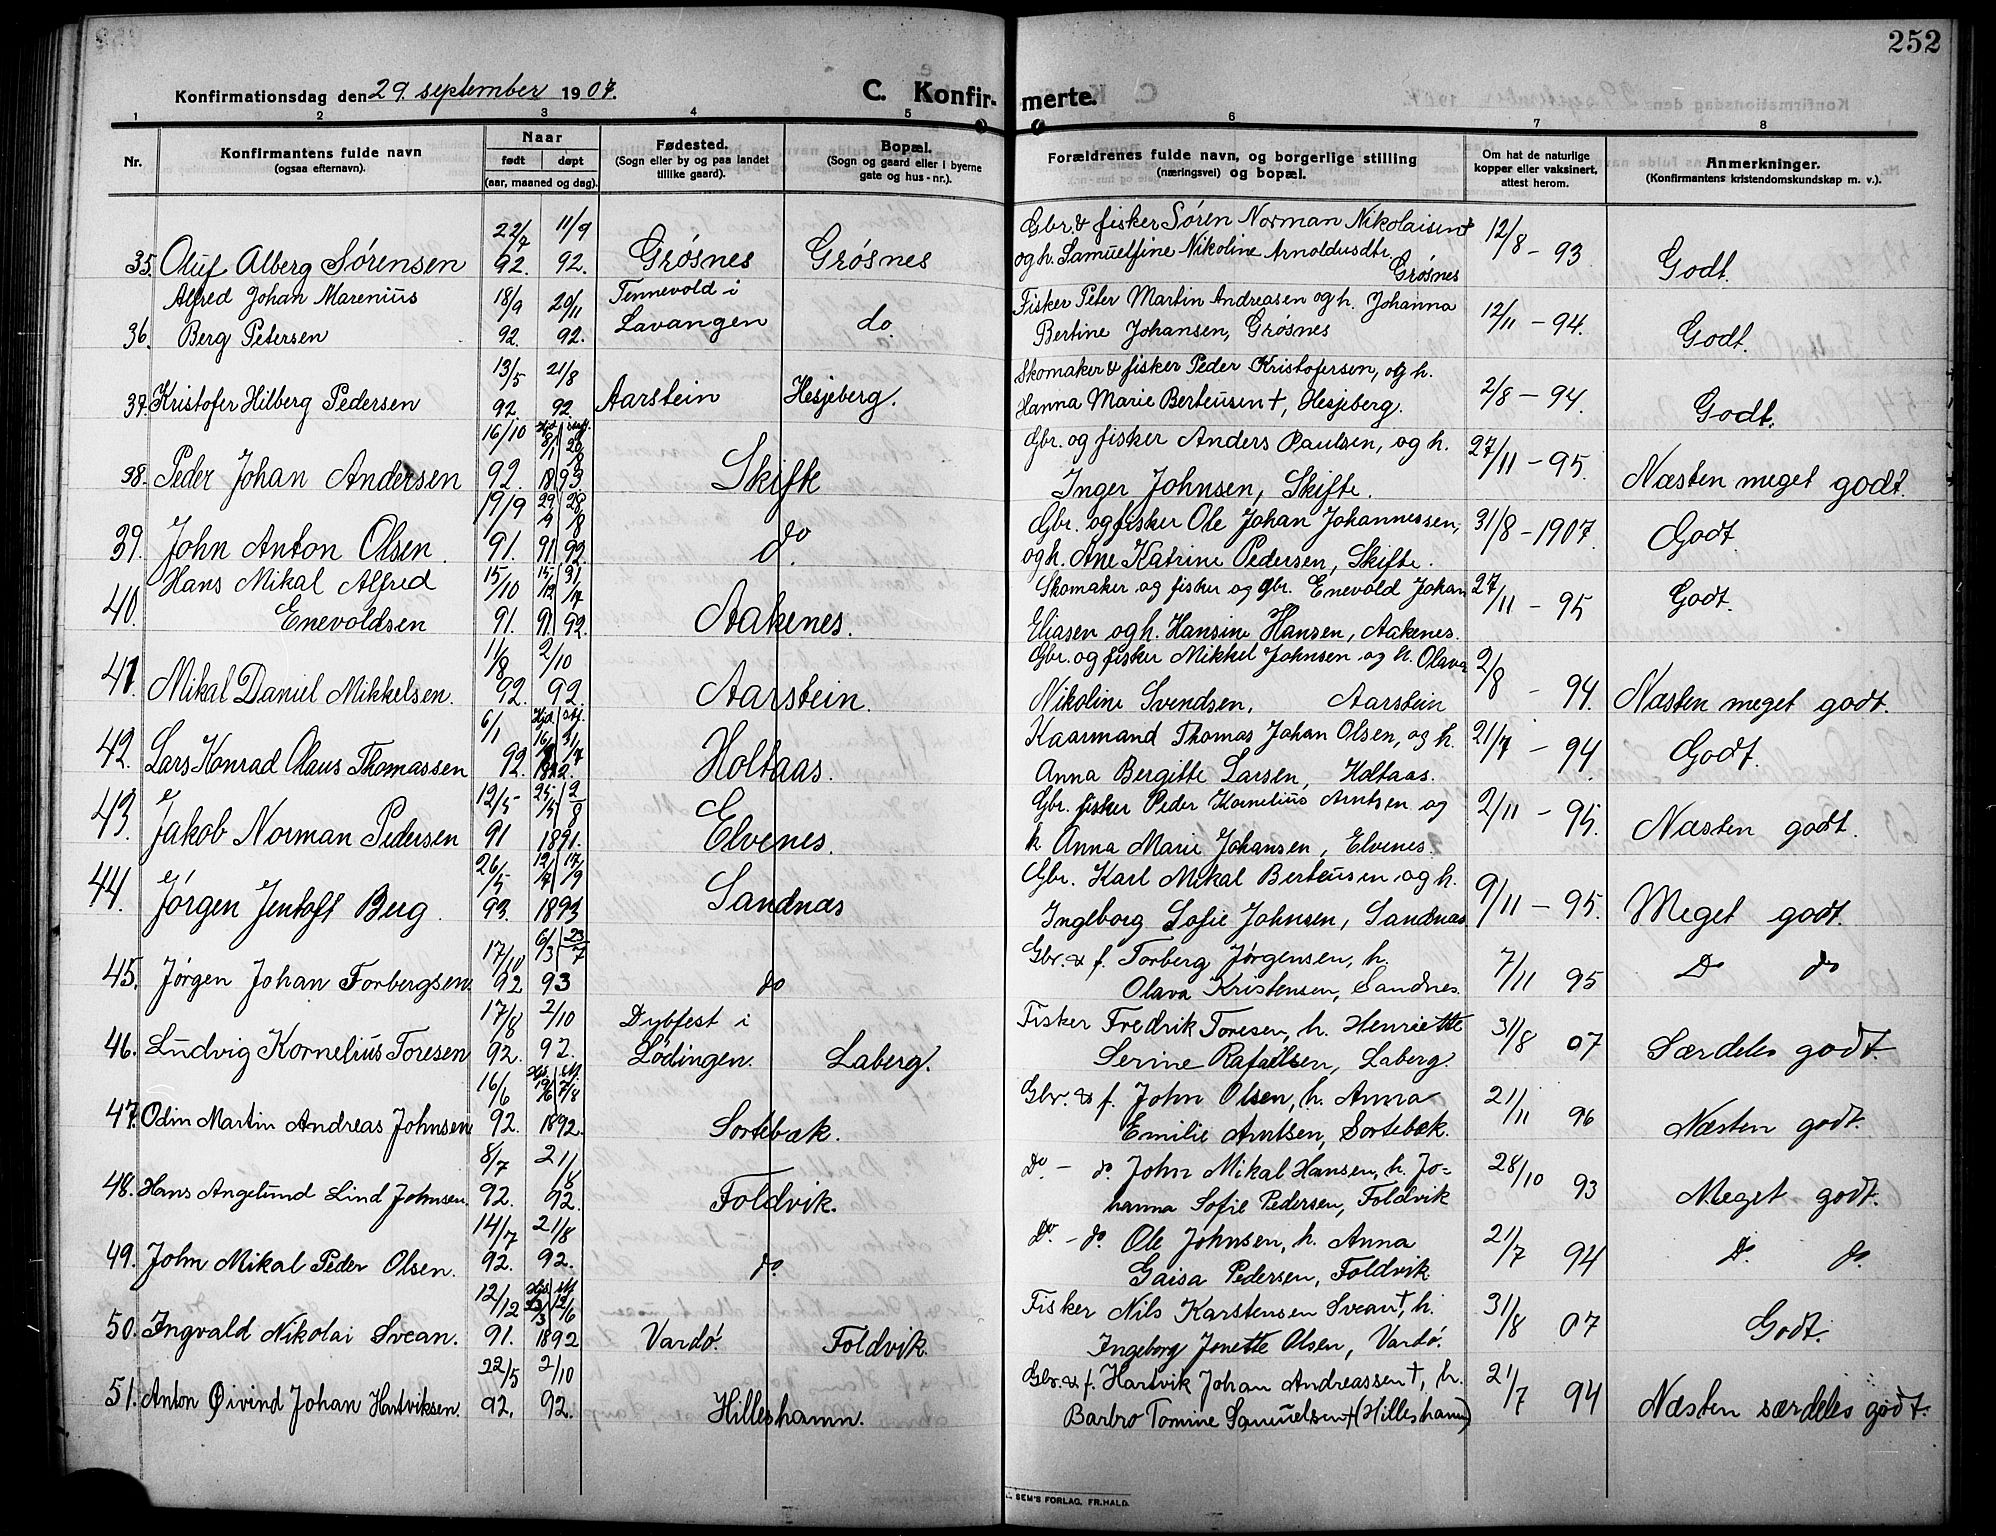 252
Konfirmationsdag den 29. september 1907.
C. Konfirmerte.
1 2 3 4 5 6 7 8
Nr.
Konfirmantens fulde navn
(ogsaa efternavn).
Naar
født døpt
(aar, maaned og dag).
Fødested.
(Sogn eller by og paa landet
tillike gaard).
Bopæl.
(Sogn og gaard eller i byerne
gate og hus-nr.).
Forældrenes fulde navn, og borgerlige stilling
(næringsvei) og bopæl.
Om hat de naturlige
kopper eller vaksinert,
attest herom.
Anmerkninger.
(Konfirmantens kristendomskundskap m. v.).
22/7 11/9 Gbr. & fisker Søren Norman Nikolaisen† 12/8 – 93
35. Oluf Alberg Sørensen 92. 92. Grøsnes Grøsnes og h. Samuelfine Nikoline Arnoldusdtr, Grøsnes Godt.
Alfred Johan Marenius 18/9 20/11 Tennevold i Fisker Peter Martin Andreasen og h. Johanna 12/11 – 94.
36. Berg Petersen 92. 92. Lavangen do. Bertine Johansen, Grøsnes Godt.
13/5 21/8 Skomaker & fisker Peder Kristofersen, og h.
37. Kristofer Hilberg Pedersen 92. 92. Aarstein Hesjeberg. Hanna Marie Berteusen †, Hesjeberg. 2/8 – 94. Godt.
16/10 8/1 Gbr. og fisker Anders Paulsen, og h. 27/11 – 95.
38. Peder Johan Andersen 92. 1893 Skifte Inger Johnsen, Skifte. Næsten meget godt.
19/9 Gbr. og fisker Ole Johan Johannessen, 31/8 – 1907.
39. John Anton Olsen. 91. 91. 92. do. og h. Ane Katrine Pedersen, Skifte. Godt.
Hans Mikal Alfred 15/10 15/12 31/7 Skomaker og fisker og gbr. Enevold Johan 27/11 – 95
40. Enevoldsen 91. 91. 92. Aakenes. Eliasen og h. Hansine Hansen, Aakenes. Godt.
11/8 2/10 Gbr. og fisker Mikkel Johnsen og h. Olava 2/8 – 94.
41. Mikal Daniel Mikkelsen. 92. 92. Aarstein. Nikoline Svendsen, Aarstein Næsten meget godt.
6/1 31/7 Kaarmand Thomas Johan Olsen, og h. 21/7 – 94.
42. Lars Konrad Olaus Thomassen 92. 1892. Holtaas. Anna Bergitte Larsen, Holtaas. Godt.
12/5 25/5 2/8 Gbr. fisker Peder Kornelius Arntsen og 2/11 – 95.
43. Jakob Norman Pedersen 91 1891. Elvenes. h Anna Marie Johansen, Elvenes. Næsten godt.
26/5 12/7 17/9 Gbr. Karl Mikal Berteusen og h. 9/11 – 95.
44. Jørgen Jentoft Berg. 93. 1893 Sandnæs Ingeborg Sofie Johnsen, Sandnæs Meget godt.
17/10 6/3 23/7 Gbr. & f. Torberg Jørgensen, h. 7/11 95
45. Jørgen Johan Torbergsen. 92 93 do Olava Kristensen, Sandnes. Do do
17/8 2/10 Dybfest i Fisker Fredrik Toresen, h. Henriette 31/8 07
46. Ludvig Kornelius Toresen 92. 92. Lødingen. Laberg. Serine Rafaelsen, Laberg. Særdeles godt
16/6 19/6 7/8 Gbr. & f. John Olsen, h. Anna 21/11 96
47. Odin Martin Andreas Johnsen 92. 1892. Sortebæk. Emilie Arntsen, Sortebæk. Næsten godt.
8/7 21/8 Do – do. John Mikal Hansen, h. Jo= 28/10 93
48. Hans Angelund Lind Johnsen. 92. 92. Foldvik. hanna Sofie Pedersen, Foldvik Meget godt.
14/7 21/8 Do. – do. Ole Johnsen, h. Anna 21/7 94
49. John Mikal Peder Olsen. 92. 92. do. Gaisa Pedersen, Foldvik Do. do.
12/12 12/6 Fisker Nils Karstensen Svean†, h. 31/8 07
50. Ingvald Nikolai Svean. 91. 1892 Vardø. Foldvik. Ingeborg Jonette Olsen, Vardø. Godt.
22/5 2/10 Gbr. & f. Hartvik Johan Andreassen †, h. 21/7 94
51. Anton Øivind Johan Hartviksen. 92. 92. Hilleshamn. Barbro Tomine Samuelsen † (Hilleshamn) Næsten særdeles godt.
SEM'S FORLAG, FR.HALD.